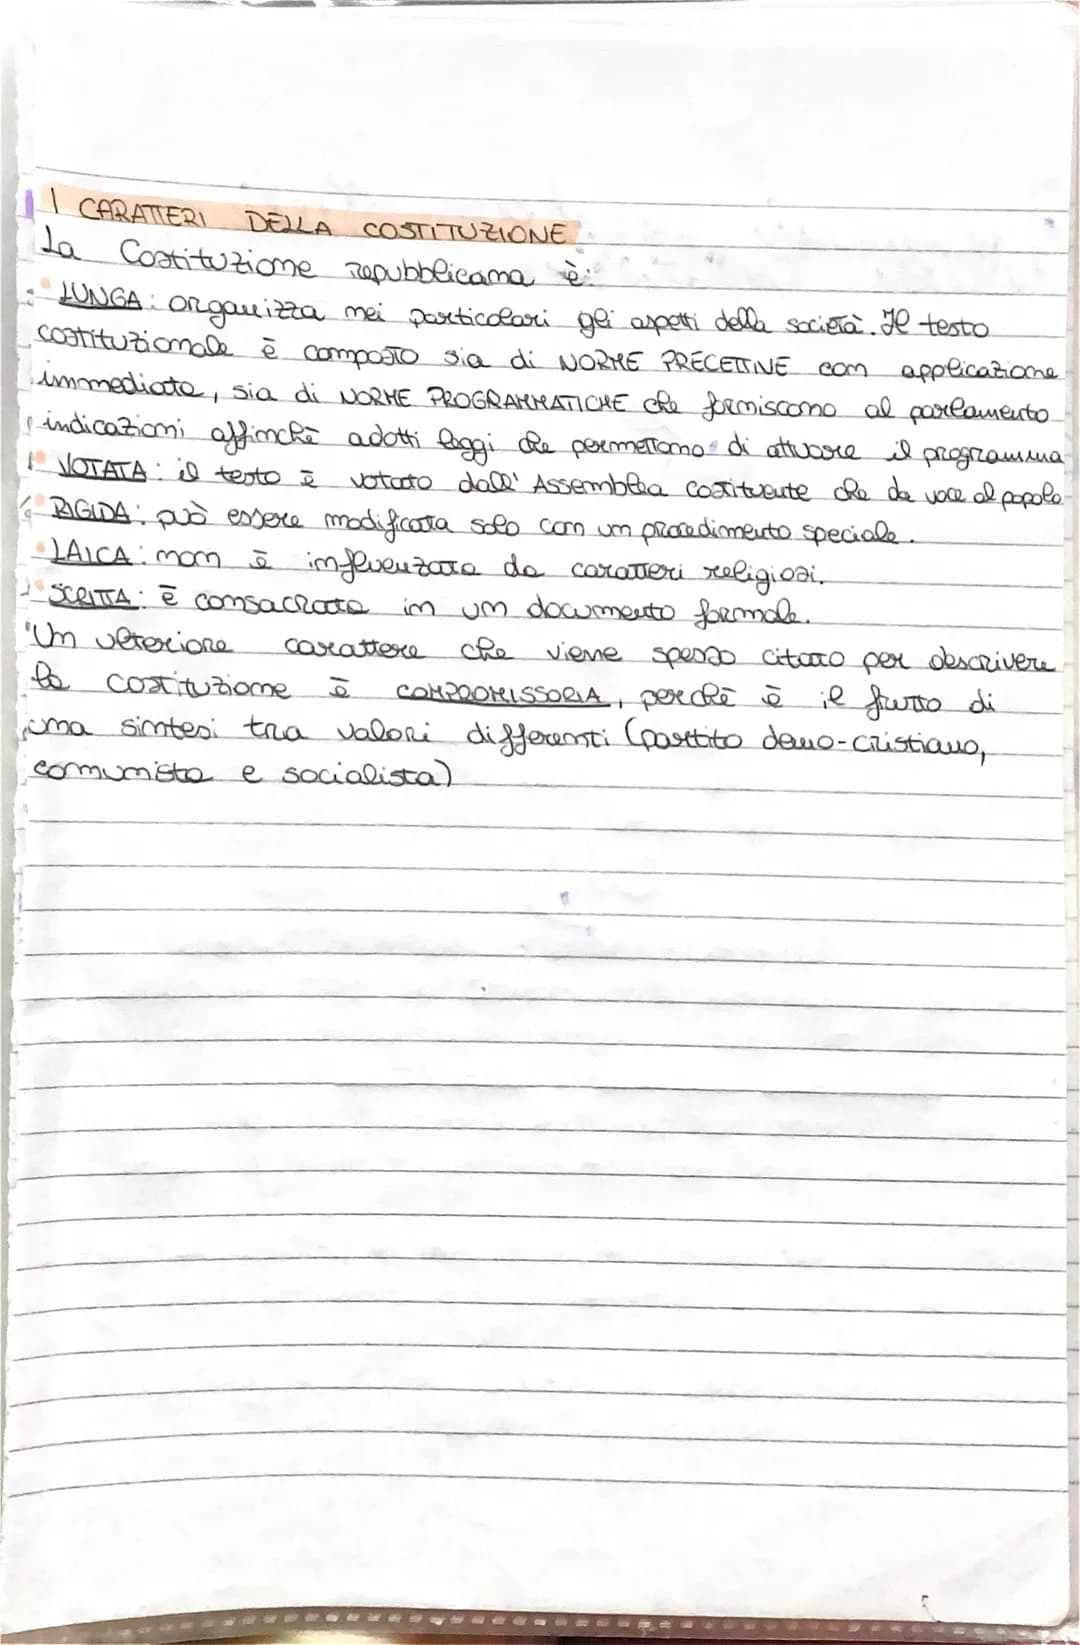 I CARATTERI DELLA COSTITUZIONE
La Costituzione repubblicana è:
• LUNGA: organizza nei particolari gli aspetti della società. Il testo
costituzionale è composto sia di NORME PRECETTIVE con applicazione
immediata, sia di NORME PROGRAMMATICHE che forniscono al parlamento
indicazioni affinché adotti leggi che permettano di attuare il programma
• VOTATA: il testo è votato dall'Assemblea costituente che da voce al popolo
• RIGIDA: può essere modificata solo con un procedimento speciale.
• LAICA: non è influenzata da caratteri religiosi.
• SCRITTA: è consacrata in un documento formale.
Un ulteriore carattere che viene spesso citato per descrivere
la costituzione è COMPROMISSORIA, perché è il frutto di
una sintesi tra valori differenti (partito demo-cristiano,
comunista e socialista)